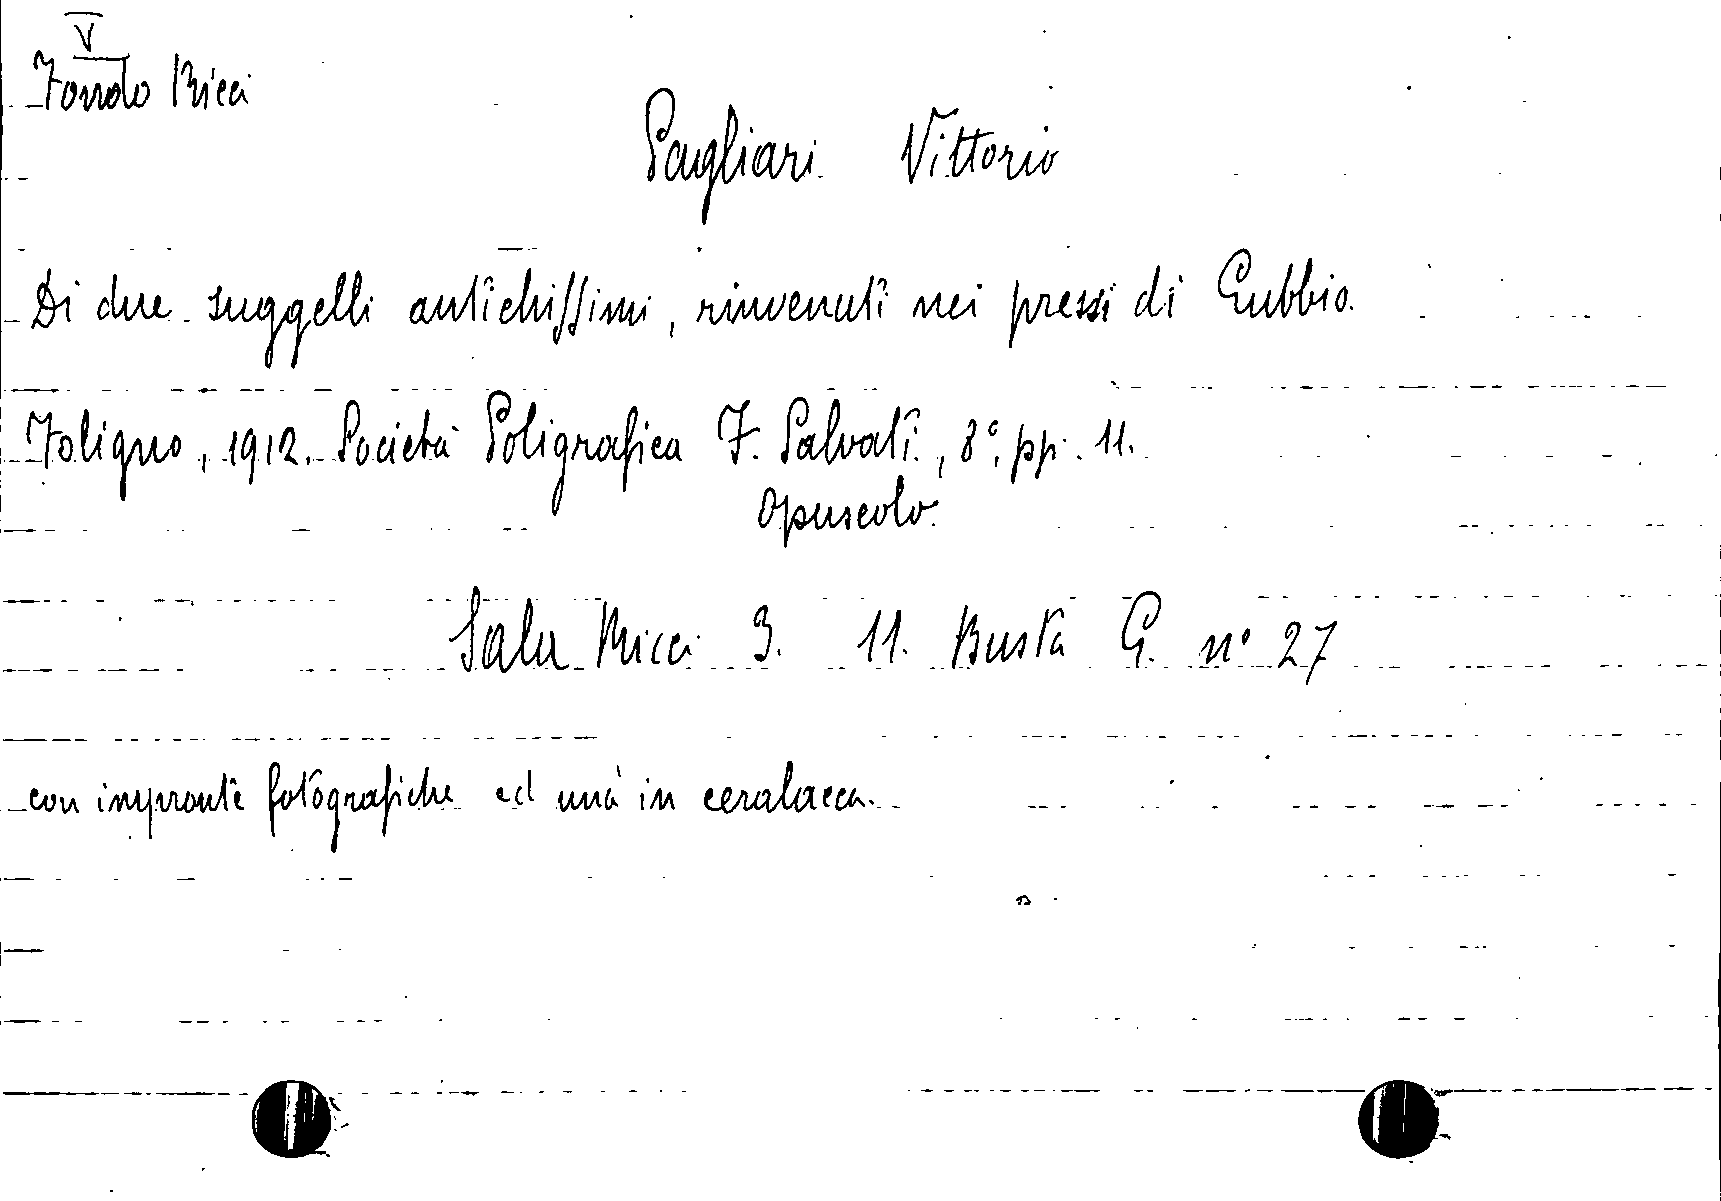 V
Fondo Ricci
Pagliari Vittorio
Di due suggelli antichissimi, rinvenuti nei pressi di Gubbio.
Foligno, 1912. Società Poligrafica F. Salvati, 8°, pp. 11.
opuscolo.
Sala Ricci 3. 11. Busta G. n° 27
con impronte fotografiche ed una in ceralacca.